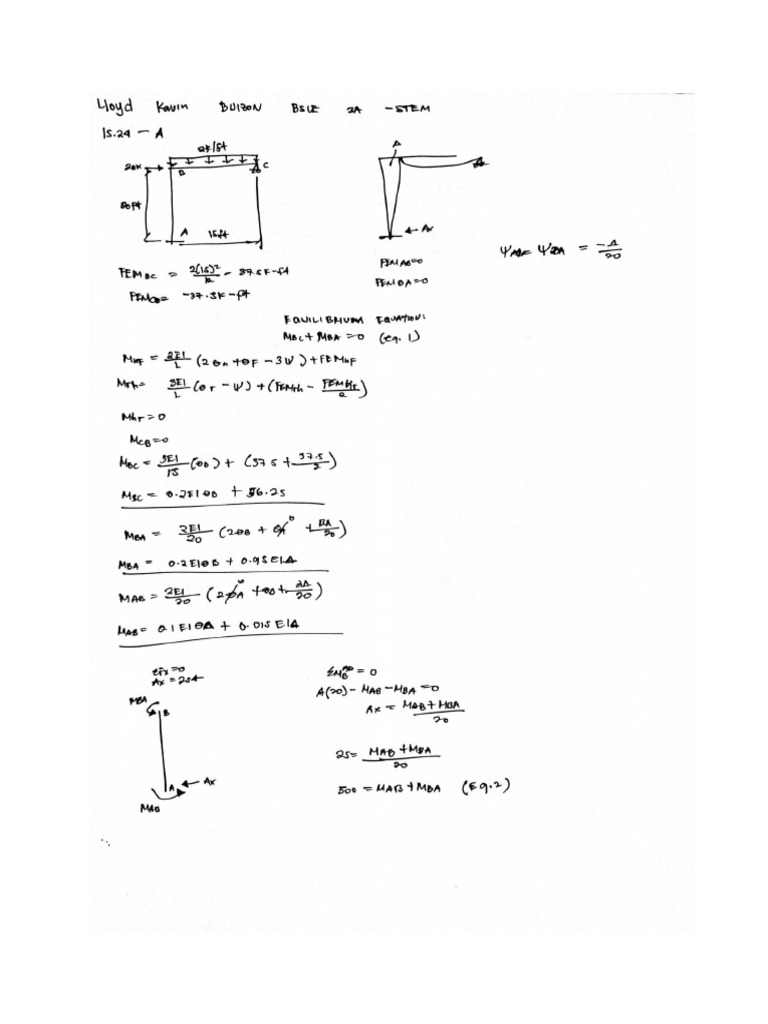 Lloyd Kavin BUIZON BSCE 2A -STEM
15.24 - A
2k/ft
B
C
20ft
A
15ft
Δ
← Ax
ΨAB = ΨBA = -Δ/20
FEMBC = 2(15)²/12 - 37.5K-ft
FEMCB = -37.5K-ft
FEMAB=0
FEMBA=0
EQUILIBRIUM EQUATION:
MBC + MBA = 0 (eq. 1)
MnF = 2EI/L (2θn + θF - 3Ψ) + FEMnF
Mrh = 3EI/L (θr - Ψ) + (FEMrh - FEMhr/2)
Mhr = 0
MCB = 0
MBC = 3EI/15 (θB) + (37.5 + 37.5/2)
MBC = 0.2EIθB + 56.25
MBA = 2EI/20 (2θB + θA⁰ + 3Δ/20)
MBA = 0.2EIθB + 0.95EIΔ
MAB = 2EI/20 (2θA⁰ + θB + 3Δ/20)
MAB = 0.1EIθA + 0.015EIΔ
Σfx=0
Ax = 25k
MBA
B
A
← Ax
MAB
ΣMB = 0
A(20) - MAB - MBA = 0
Ax = MAB + MBA/20
25 = MAB + MBA/20
500 = MAB + MBA (Eq.2)